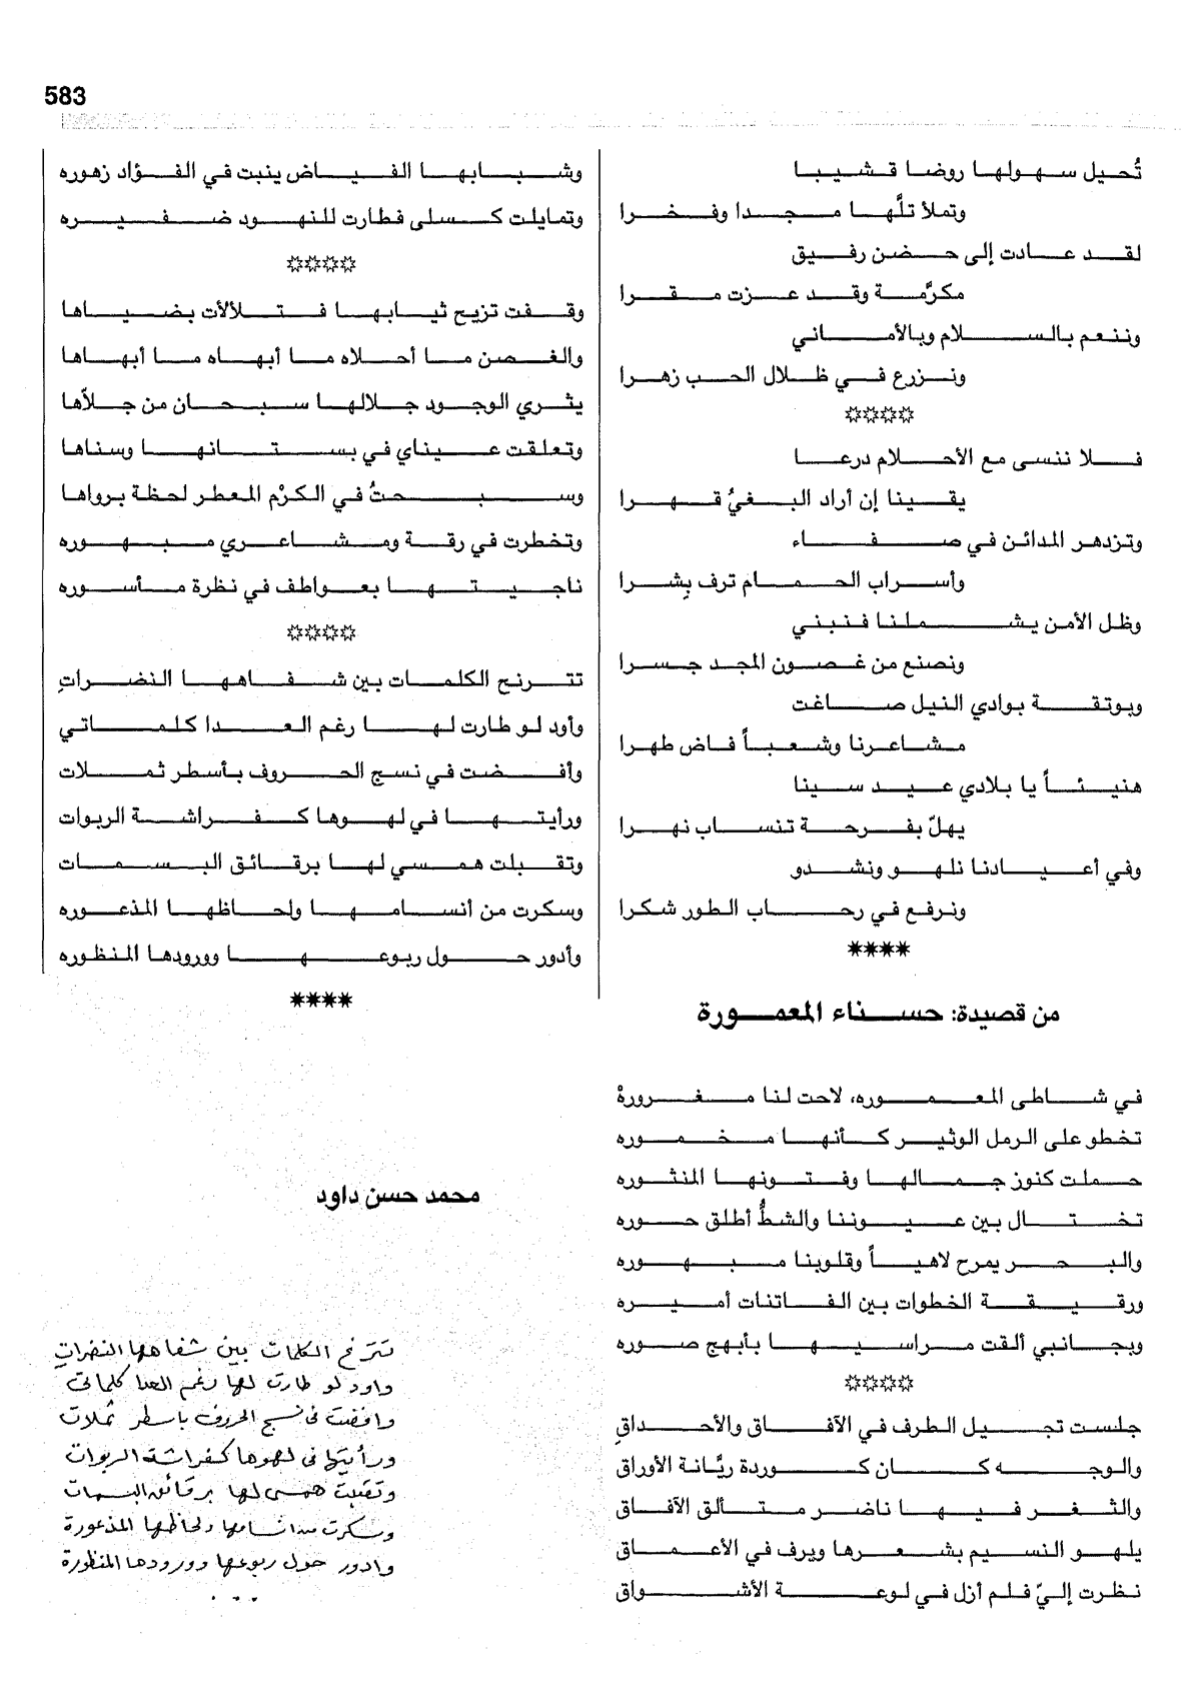 583
تُحيل سهولها روضا قشيبا
وتملأ تلَّها مجدا وفخرا
لقد عادت إلى حضن رفيق
مكرَّمة وقد عزت مقرا
وننعم بالسلام وبالأماني
ونزرع في ظلال الحب زهرا
فلا ننسى مع الأحلام درعا
يقينا إن أراد البغيُ قهرا
وتزدهر المدائن في صفاء
وأسراب الحمام ترف بِشرا
وظل الأمن يشملنا فنبني
ونصنع من غصون المجد جسرا
وبوتقة بوادي النيل صاغت
مشاعرنا وشعباً فاض طهرا
هنيئاً يا بلادي عيد سينا
يهلّ بفرحة تنساب نهرا
وفي أعيادنا نلهو ونشدو
ونرفع في رحاب الطور شكرا
****
من قصيدة: حسناء المعمورة
في شاطى المعموره، لاحت لنا مغرورهْ
تخطو على الرمل الوثير كأنها مخموره
حملت كنوز جمالها وفتونها المنثوره
تختال بين عيوننا والشطُّ أطلق حوره
والبحر يمرح لاهياً وقلوبنا مبهوره
ورقيقة الخطوات بين الفاتنات أميره
وبجانبي ألقت مراسيها بأبهج صوره
جلست تجيل الطرف في الآفاق والأحداقِ
والوجه كان كوردة ريَّانة الأوراق
والثغر فيها ناضر متألق الآفاق
يلهو النسيم بشعرها ويرف في الأعماق
نظرت إليّ فلم أزل في لوعة الأشواق
وشبابها الفياض ينبت في الفؤاد زهوره
وتمايلت كسلى فطارت للنهود ضفيره
وقفت تزيح ثيابها فتلالأت بضياها
والغصن ما أحلاه ما أبهاه ما أبهاها
يثري الوجود جلالها سبحان من جلاّها
وتعلقت عيناي في بستانها وسناها
وسبحتُ في الكرْم المعطر لحظة برواها
وتخطرت في رقة ومشاعري مبهوره
ناجيتها بعواطف في نظرة مأسوره
تترنح الكلمات بين شفاهها النضراتِ
وأود لو طارت لها رغم العدا كلماتي
وأفضت في نسج الحروف بأسطر ثملات
ورأيتها في لهوها كفراشة الربوات
وتقبلت همسي لها برقائق البسمات
وسكرت من أنسامها ولحاظها المذعوره
وأدور حول ربوعها وورودها المنظوره
****
محمد حسن داود
تترنح الكلمات بين شفاهها النضراتِ
وأود لو طارت لها رغم العدا كلماتى
وافضت فى نسج الحروف باسطر ثملات
ورأيتها فى لهوها كفراشة الربوات
وتقبلت همسى لها برقائق البسمات
وسكرت من انسامها ولحاظها المذعورة
وادور حول ربوعها وورودها المنظورة